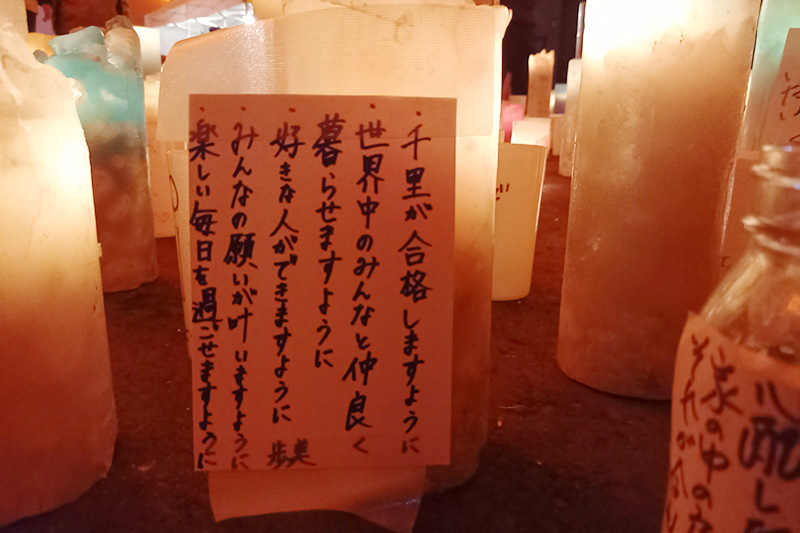 ・千里が合格しますように
・世界中のみんなと仲良く
暮らせますように
・好きな人ができますように
・みんなの願いが叶いますように
・楽しい毎日を過ごせますように
歩美